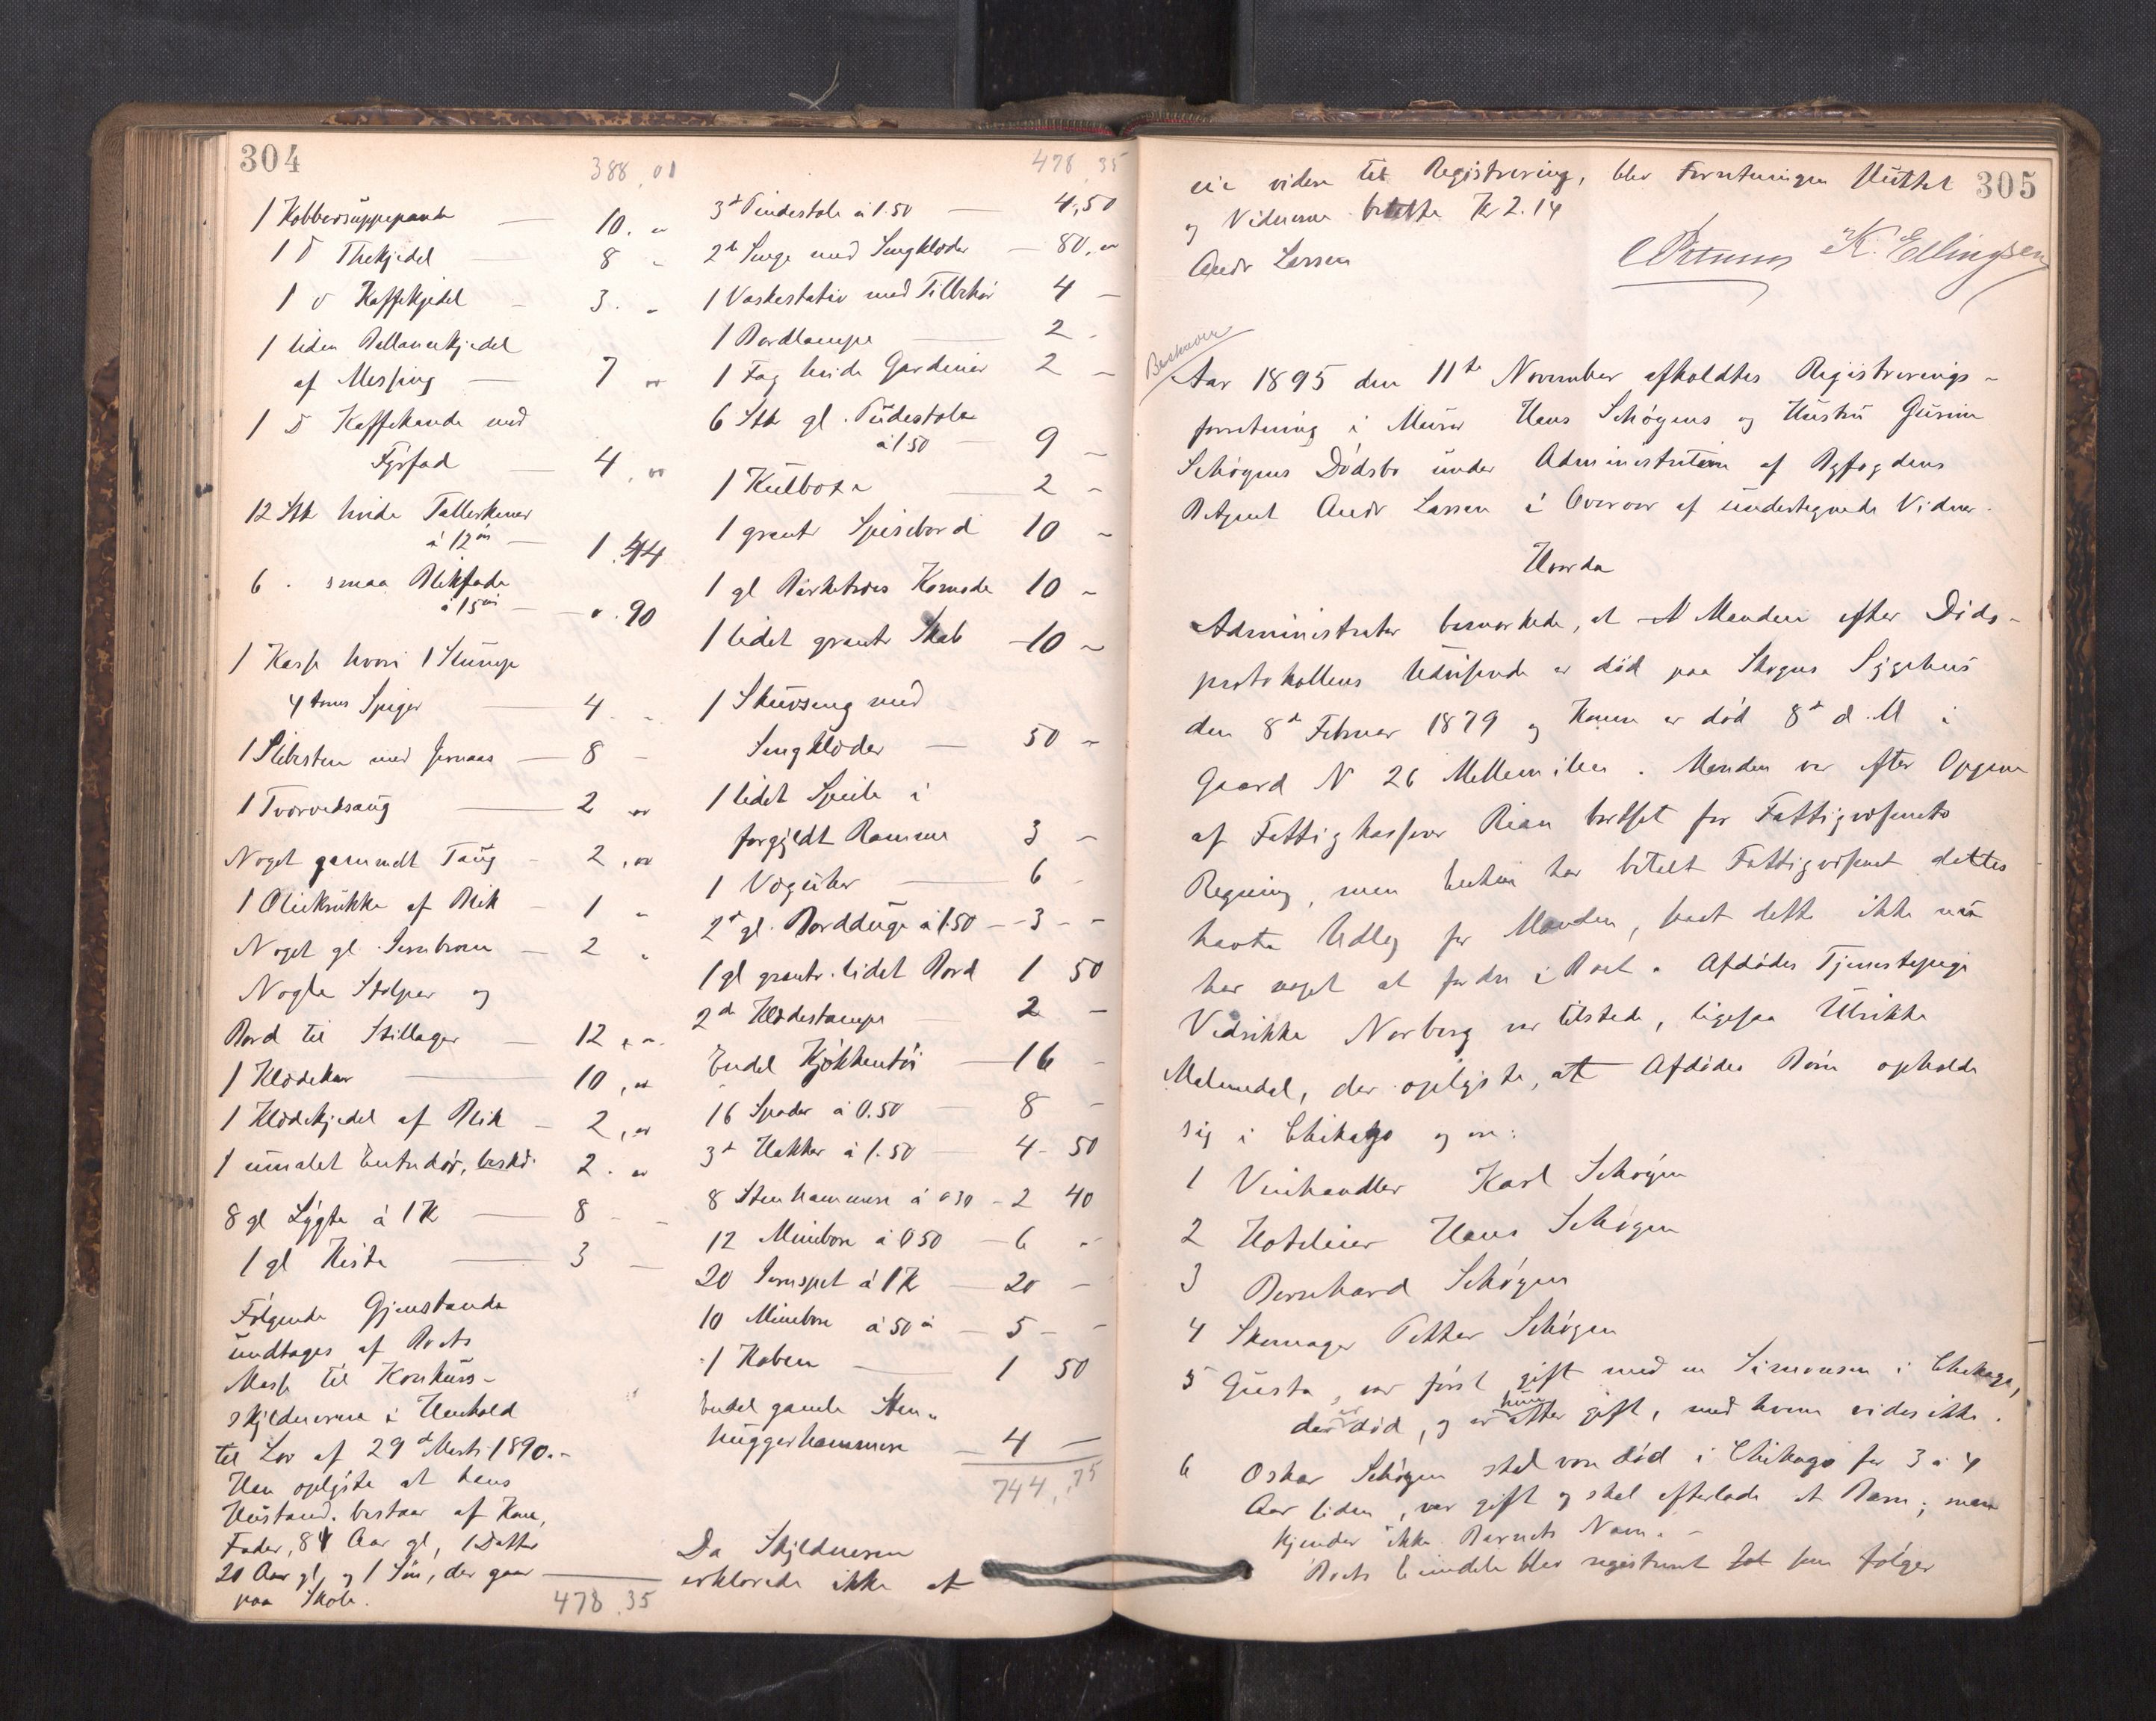 304
388,01
1 Kobbersuppepande — 10. "
1 D Thekjedel — 8 "
1 D Kaffekjedel — 3. "
1 liden Ballancekjedel
af Messing — 7 "
1 D Kaffekande med
Fyrfad — 4, "
12 Stk hvide Tallerkener
à 12 øre — 1.44
6 . smaa Blikfade
à 15 øre — ".90
1 Kasse hvori 1 Stump
4 toms Spiger — 4. "
1 Slibesten med Jernaas — 8 "
1 Tvervedsaug — 2 "
Noget gammelt Taug — 2, "
1 Oliekrukke af Blik — 1 "
Noget gl. Jernkram — 2 "
Nogle Stolper og
Bord til Stillager — 12, "
1 Klædekar — 10, "
1 Klædekjedel af Blik — 2, "
1 umalet Entredør, beskd. 2. "
8 gl Lygte à 1 Kr — 8 -
1 gl Kiste — 3 —
Følgende Gjenstande
undtages af Boets
Masse til Konkurs-
skjldnerne i Henhold
til Lov af 29de Marts 1890.-
Han oplyste at hans
Hustand. bestaar af Kone,
Fader, 84 Aar gl, 1 Datter
20 Aar gl, og 1 Søn, der gaar
paa Skole.
478.35
478,35
3de Pindestole à 1.50 — 4,50
2de Senge med Sengklæder — 80, "
1 Vaskestativ med Tilbehør 4 —
1 Bordlampe 2 -
1 Fag hvide Gardiner 2 —
6 Stk gl. Pindestole
à 1 50 — 9 —
1 Kulboxe — 2 —
1 grantr Spisebord 10 —
1 gl Birketræes Komode 10 —
1 lidet grantr Skab — 10 —
1 Skuvseng med
Sengklæder — 50 —
1 lidet Speile i
forgyldt Ramme 3 —
1 Vægúhr — 6 -
2de gl. Bordduge à 1.50 — 3 - -
1 gl grantr. lidet Bord 1 50
2de Klædestampe — 2 —
Endel Kjøkkentøi — 16 -
16 Spader à 0.50 — 8 —
3de Hakker à 1.50 4 - 50
8 Stenhammere à 0 30 - 2 40
12 Minebore à 0 50 — 6 "
20 Jernspet à 1 Kr — 20 —
10 Minebore à 50 ø — 5 - -
1 Koben — 1 50
Endel gamle Sten-
huggerhammere — 4 —
744,75
Da Skjldneren
erklærede ikke at
305
eie videre til Registrering, blev Forretningen sluttet
og Vidnerne betalte Kr 2.14
Andr Larsen
K. Ellingsen
Beskaaren
Aar 1895 den 11te November afholdtes Registrerings-
forretning i Murer Hans Schøyens og Hustru Gurine
Schøyens Dødsbo under Administration af Byfogdens
Betjent Andr Larsen i Overvær af undertegnede Vidner.
Hvorda
Administrator bemærkede, at Manden efter Døds-
protokollens Udvisende er død paa Skogns Sygehus
den 8de Februar 1879 og Konen er død 8de d. M i
Gaard N 26 Mellemilen. Manden var efter Opgave
af Fattigkasserer Rian bortsat for Fattigvæsenets
Regning, men Enken har betalt Fattigvæsenet dettes
havte Udlæg for Manden, saat dette ikke nu
har noget at fordre i Boet. Afdødes Tjenestepige
Vedrikke Norberg var tilstede, ligesaa Ulrikke
Malmedal, der oplyste, at Afdødes Børn opholde
sig i Chikago og ere:
1 Vinhandler Karl Schøyen
2 Hoteleier Hans Schøyen
3 Bernhard Schøyen
4 Skomager Petter Schøyen
5 Gusta, var først gift med en Simonsen i Chikago,
der er død, og er hun atter gift, med hvem vides ikke.
6 Oskar Schøyen skal være død i Chikago for 3 à 4
Aar siden, var gift og skal efterlade et Barn; man
kjender ikke Barnets Navn. -
Boets Eiendele blev registreret som følger